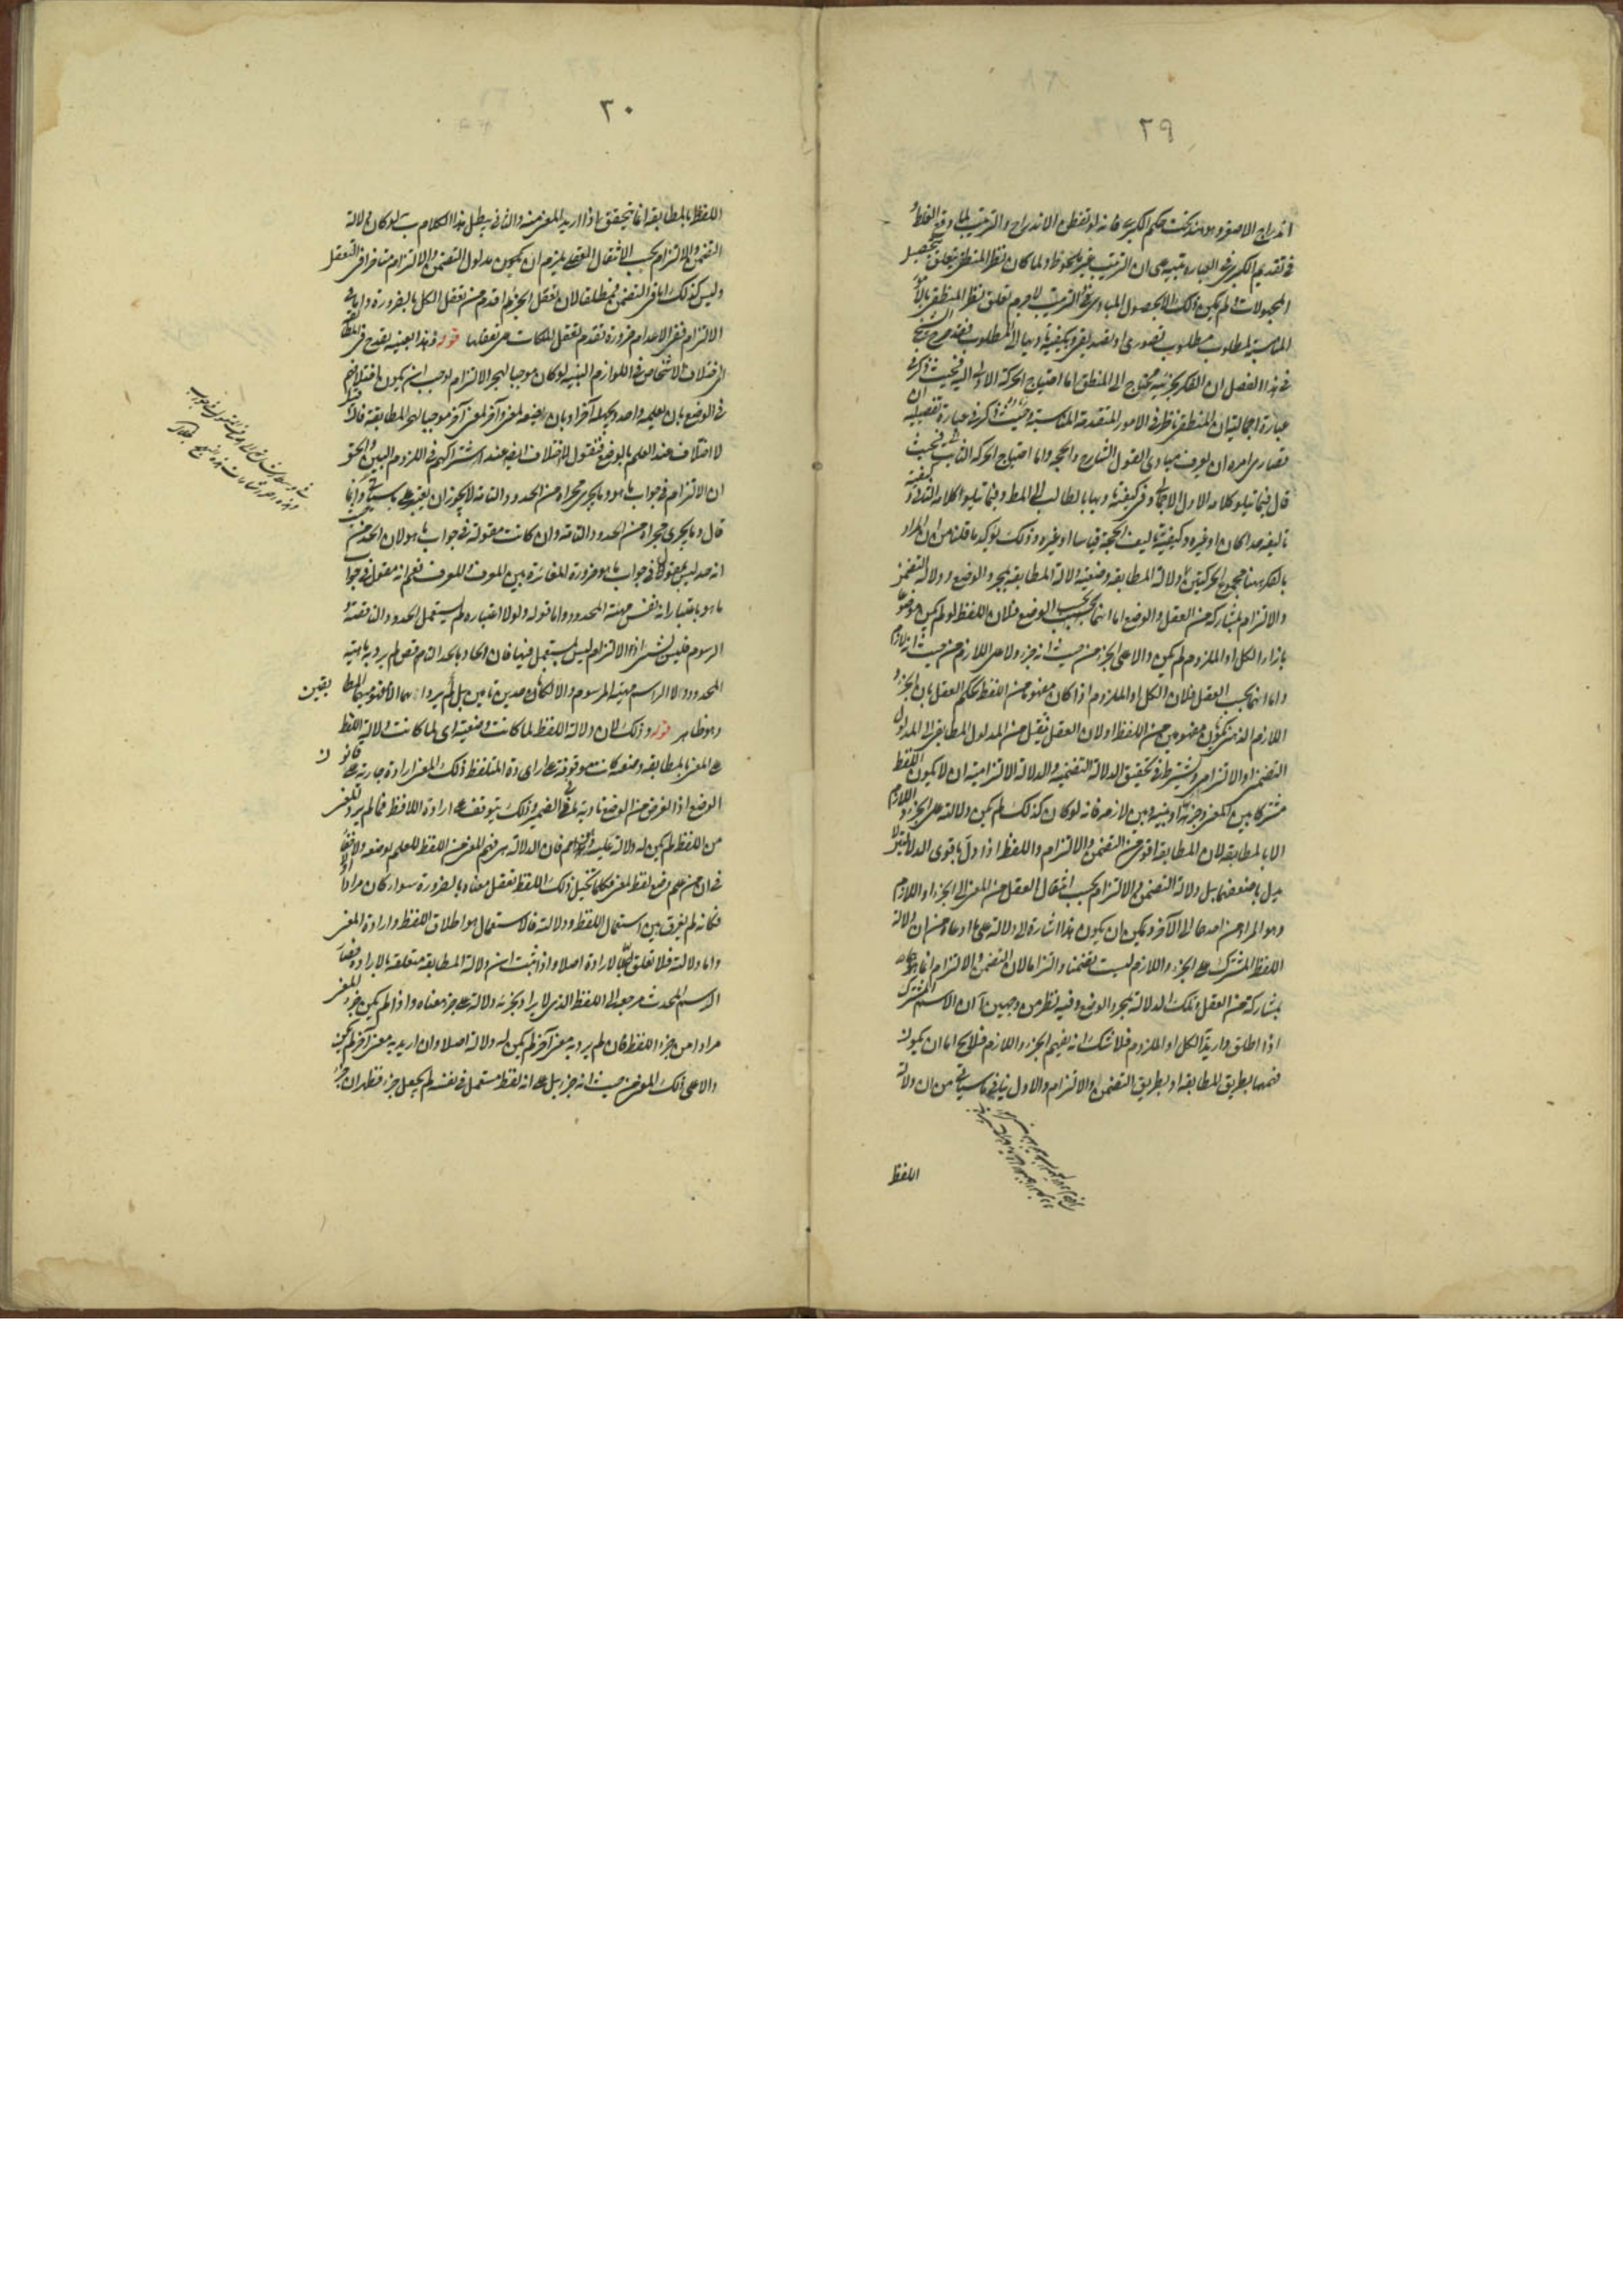 ٢٩
اندراج الاصغر وهو هذا تحت حكم الكبرى فانه لو تفطن الاندراج والترتيب لما وقع الغلط
في تقديم الكبرى في العبارة تنبيه على ان الترتيب غير ملحوظ ولما كان نظر المنطقي يتعلق بتحصيل
المجهولات ولم يكن ذلك الا بحصول المبادى والترتيب لا جرم تعلق نظر المنطقي بالامور
المناسبة لمطلوب مطلوب تصورى او تصديقى وبكيفية تأديها الى المطلوب فقد صرح الشيخ
في هذا الفصل ان الفكر بجزئيه محتاج الى المنطق اما احتياج الحركة الاولى اليه فحيث ذكر في
عبارة اجمالية ان المنطقى ناظر في الامور المتقدمة المناسبة وحيث ذكر في عبارة تفصيلية ان
قصارى امره ان يعرف مبادى القول الشارح والحجة واما احتياج الحركة الثانية فحيث
قال فيما يتلو كلامه الاول الاجمالى وفي كيفية تأديها بالطالب الى المطلوب وفيما يتلو كلامه الثانى وكيفية
تأليفه حدا كان او غيره وكيفية تأليف الحجة قياسا او غيره وذلك يؤكد ما قلنا من ان المراد
بالفكر ههنا مجموع الحركتين دلالة المطابقة وضعية دلالة المطابقة بمجرد الوضع ودلالة التضمن
والالتزام بمشاركة من العقل والوضع اما انها بحسب الوضع فلان اللفظ لو لم يكن موضوعا
بازاء الكل او الملزوم لم يكن دالا على الجزء من حيث انه جزء ولا على اللازم من حيث انه لازم
واما انها بحسب العقل فلان الكل او الملزوم اذا كان مفهوما من اللفظ يحكم العقل بان الجزء و
اللازم الذهنى يكون مفهومين من اللفظ او لان العقل ينتقل من المدلول المطابقى الى المدلول
التضمنى او الالتزامى ويشترط في تحقيق الدلالة التضمنية والدلالة الالتزامية ان لا يكون اللفظ
مشتركا بين المعنى وجزئه او بينه وبين لازمه فانه لو كان كذلك لم يكن دلالته على الجزء و اللازم
الا بالمطابقة لان المطابقة اقوى من التضمن والالتزام واللفظ اذا دل باقوى الدلالتين لا
يدل باضعفهما بل دلالة التضمن والالتزام بحسب انتقال العقل من المعنى الى الجزء او اللازم
وهو المراد من احدهما الى الآخر ويمكن ان يكون هذا اشارة الى دلالة على ما ادعاه من ان دلالة
اللفظ المشترك على الجزء واللازم ليست تضمنا والتزاما لان التضمن والالتزام انما هو
بمشاركة من العقل وتلك الدلالة بمجرد الوضع وفيه نظر من وجهين آ ان الاسم المشترك
اذا اطلق واريد به الكل او الملزوم فلا شك انه يفهم الجزء واللازم فلا يخ اما ان يكون
فهمها بطريق المطابقة او بطريق التضمن والالتزام والاول ينافى ما سيأتى من ان دلالة
اللفظ
٣٠
اللفظ بالمطابقة انما يتحقق اذا اريد المعنى منه والثانى يبطل هذا الكلام ب لو كان دلالة
التضمن والالتزام بحسب الانتقال العقلى يلزم ان يكون مدلول التضمن والالتزام متأخرا في التعقل
وليس كذلك اما في التضمن فمطلقا لان تعقل الجزء اقدم من تعقل الكل بالضرورة واما في
الالتزام ففى الاعدام ضرورة تقدم تعقل الملكات على تعقلها قوله وهذا بعينه يقدح في المطابقة
اختلاف الاشخاص في اللوازم البينة لو كان موجبا لهجر الالتزام لوجب ان يكون اختلافهم
في الوضع بان يعلمه واحد ويجهله آخر او بان يضعه لمعنى وآخر لمعنى آخر موجبا لهجر المطابقة فان قيل
لا اختلاف عند العلم بالوضع فنقول لا اختلاف ايضا عند اشتراكهم في اللزوم البين والحق
ان الالتزام في جواب ما هو وما يجرى مجراه من الحدود التامة لا يجوز ان يعتبر على ما سيأتى وانما
قال وما يجرى مجراه من الحدود التامة وان كانت مقولة في جواب ما هو لان الحد من حيث
انه حد ليس بمقول في جواب ما هو ضرورة المغايرة بين المعرف والمعرف نعم انه مقول في جواب
ما هو باعتبار انه نفس مهية المحدود واما قوله ولولا اعتباره لم يستعمل الحدود الناقصة و
الرسوم فليس بشىء اذ الالتزام ليس بمستعمل فيها فان الحاد بالحد الناقص لم يرد به ماهية
المحدود ولا الراسم مهية المرسوم والا لكانا حدين تامين بل لم يرد الا مفهوميهما المطابقين
وهو ظاهر قوله وذلك لان دلالة اللفظ لما كانت وضعية اى لما كانت دلالة اللفظ
على المعنى بالمطابقة وضعية كانت موقوفة على ارادة المتلفظ ذلك المعنى ارادة جارية على قانون
الوضع اذ الغرض من الوضع تأدية ما في الضمير وذلك يتوقف على ارادة اللافظ فما لم يرد المعنى
من اللفظ لم يكن له دلالة عليه فان الدلالة هى فهم المعنى من اللفظ للعلم بوضعه ولا خفاء
في ان من علم وضع لفظ لمعنى فكلما تخيل ذلك اللفظ تعقل معناه بالضرورة سواء كان مرادا او لا
فكأنه لم يفرق بين استعمال اللفظ ودلالته فالاستعمال هو اطلاق اللفظ وارادة المعنى
واما دلالته فلا تعلق لها بالارادة اصلا واذا ثبت ان دلالة المطابقة متعلقة بالارادة فنقول
الرسم المحدث مرجعه الى اللفظ الذى لا يراد بجزئه دلالة على جزء معناه واذا لم يكن جزء المعنى
مرادا من جزء اللفظ فان لم يرد به معنى آخر لم يكن له دلالة اصلا وان اريد به معنى آخر لم يكن
دالا على ذلك المعنى من حيث انه جزء بل على انه لفظ مستعمل في نفسه لم يجعل جزء فظهر ان جزء